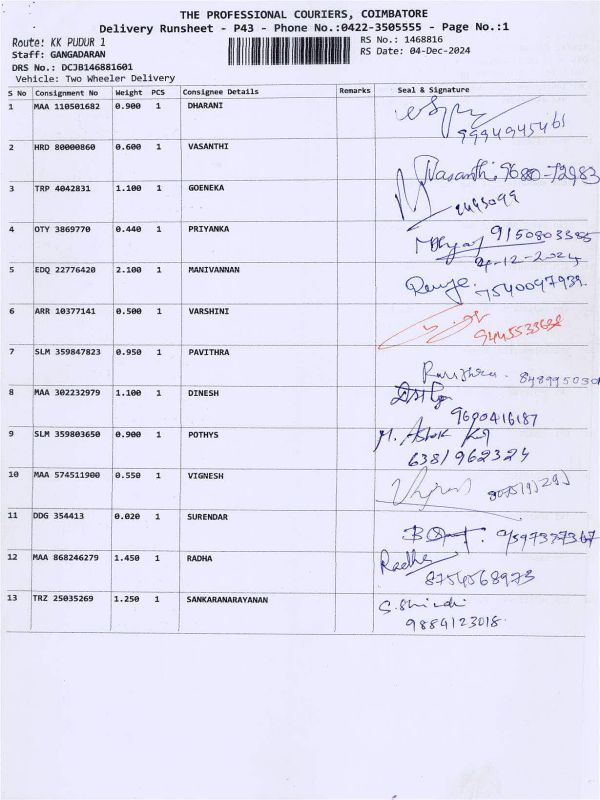 THE PROFESSIONAL COURIERS, COIMBATORE
Delivery Runsheet - P43 - Phone No.:0422-3505555 - Page No.:1
Route: KK PUDUR 1
RS No.: 1468816
Staff: GANGADARAN
RS Date: 04-Dec-2024
DRS No.: DCJB146881601
Vehicle: Two Wheeler Delivery
S No Consignment No Weight PCS Consignee Details Remarks Seal & Signature
1 MAA 110501682 0.900 1 DHARANI
9994945461
2 HRD 80000860 0.600 1 VASANTHI
Vasanthi.
3 TRP 4042831 1.100 1 GOENEKA
4 OTY 3869770 0.440 1 PRIYANKA
9150803385
5 EDQ 22776420 2.100 1 MANIVANNAN
7540097939.
6 ARR 10377141 0.500 1 VARSHINI
7 SLM 359847823 0.950 1 PAVITHRA
8 MAA 302232979 1.100 1 DINESH
9690416187
9 SLM 359803650 0.900 1 POTHYS
M. Ashok
6381962324
10 MAA 574511900 0.550 1 VIGNESH
11 DDG 354413 0.020 1 SURENDAR
12 MAA 868246279 1.450 1 RADHA
Radha
8754568973
13 TRZ 25035269 1.250 1 SANKARANARAYANAN
9884123018.